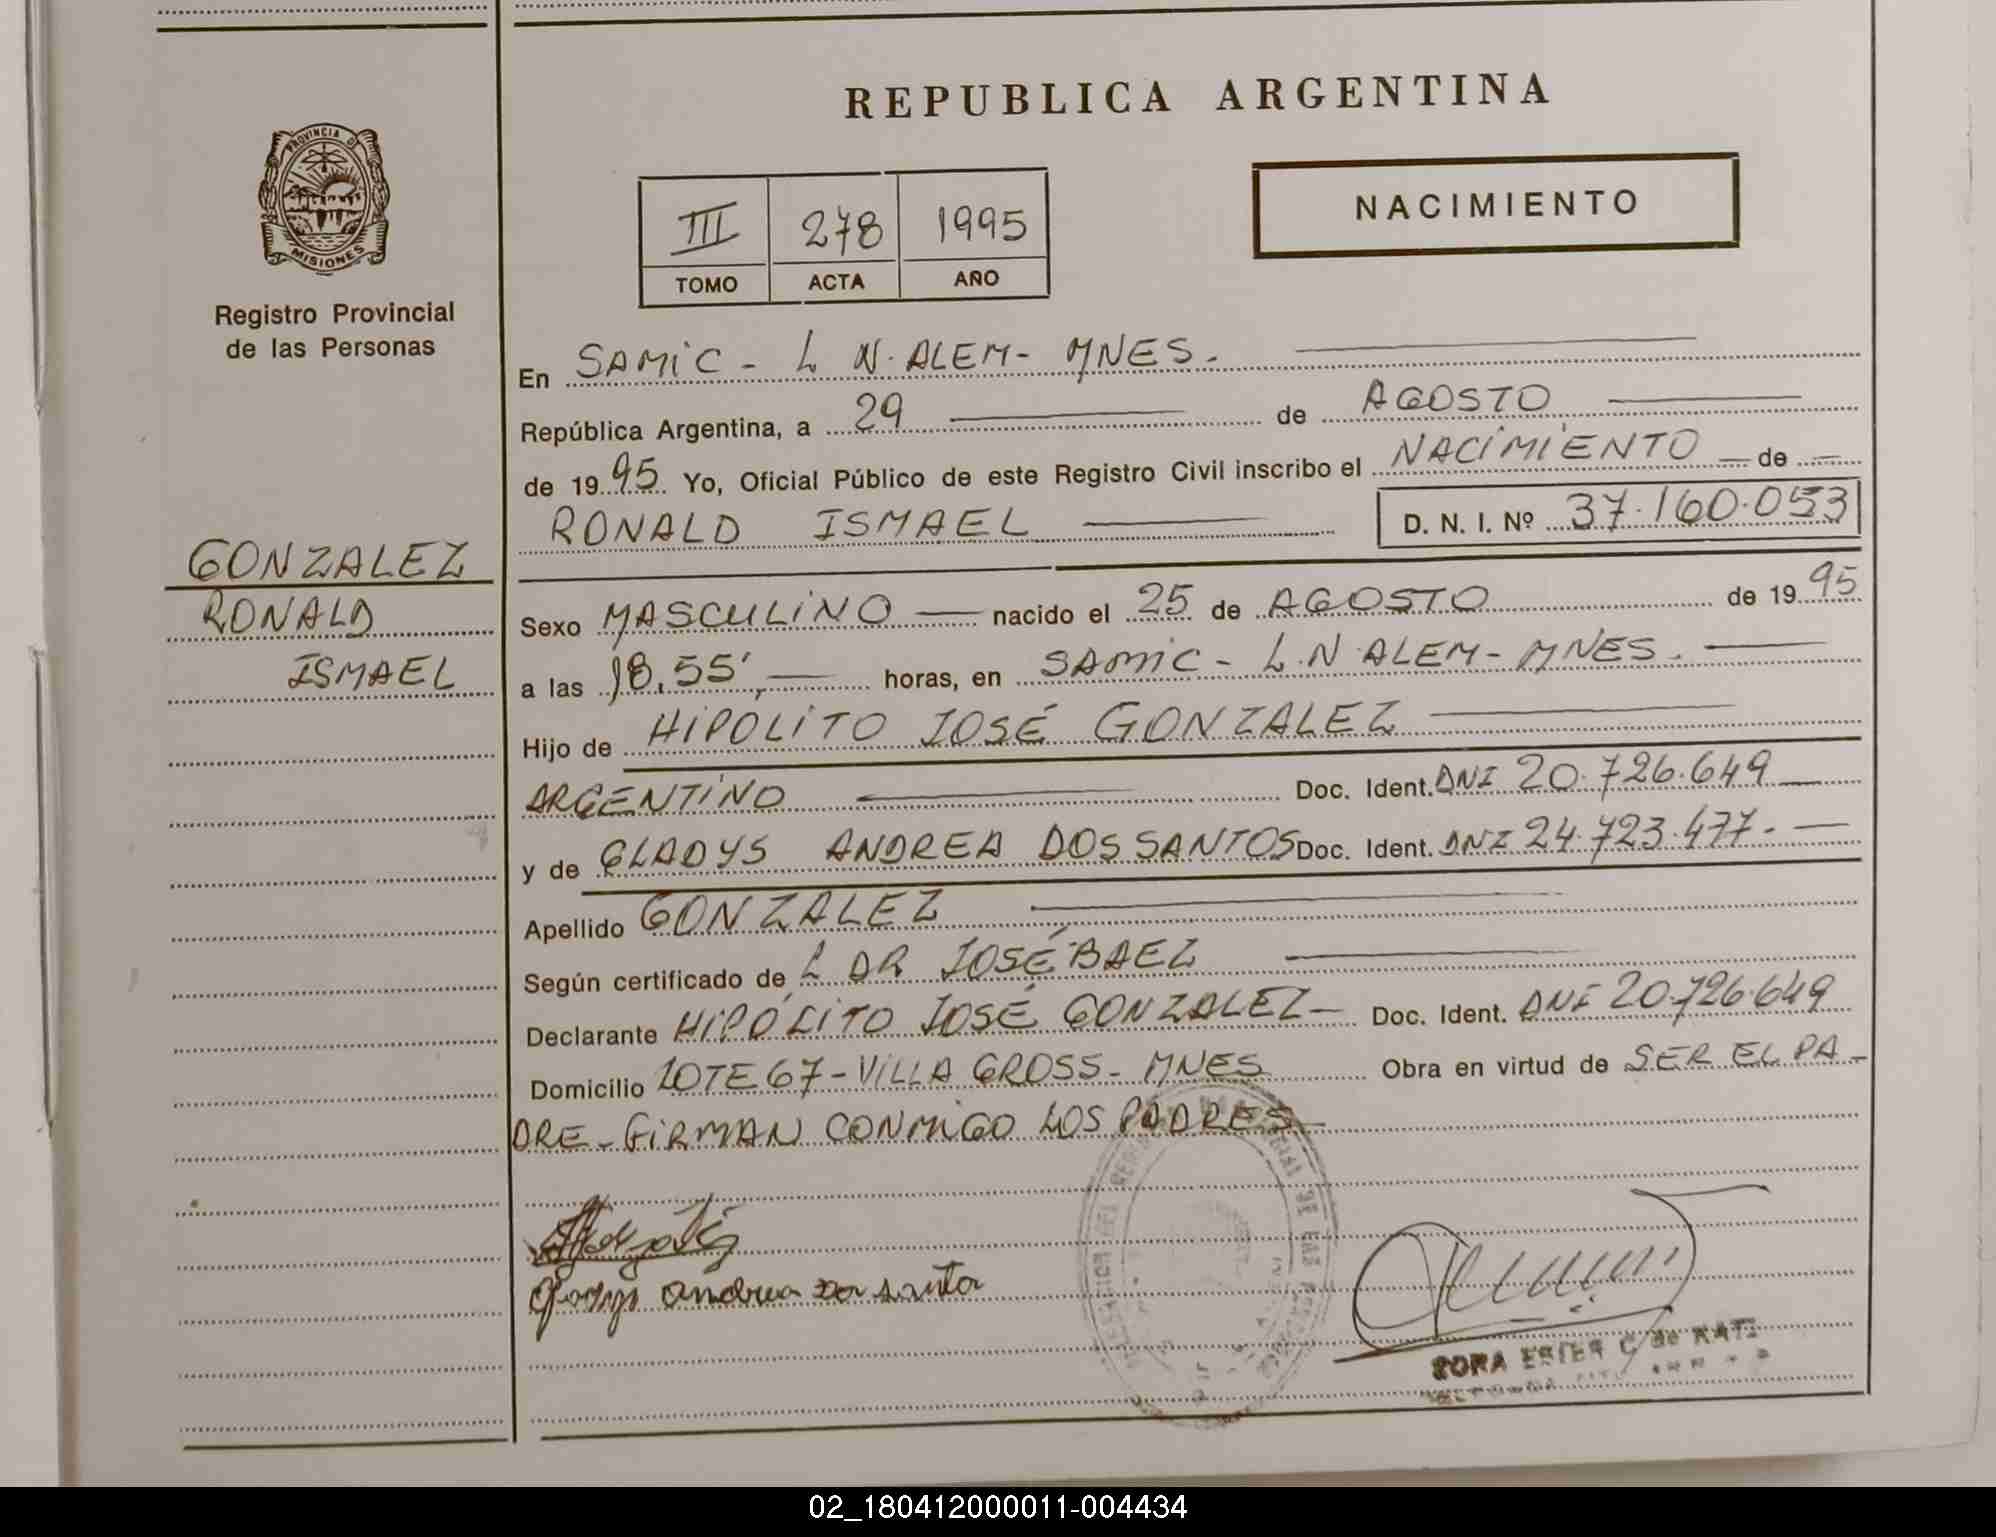 REPUBLICA ARGENTINA
PROVINCIA DE
MISIONES
Registro Provincial
de las Personas
III 278 1995
TOMO ACTA AÑO
NACIMIENTO
GONZALEZ
RONALD
ISMAEL
En SAMIC - L N. ALEM - MNES.
República Argentina, a 29 de AGOSTO
de 1995 Yo, Oficial Público de este Registro Civil inscribo el NACIMIENTO de
RONALD ISMAEL D. N. I. Nº 37.160.053
Sexo MASCULINO nacido el 25 de AGOSTO de 1995
a las 18,55', horas, en SAMIC - L.N ALEM - MNES.
Hijo de HIPOLITO JOSÉ GONZALEZ
ARGENTINO Doc. Ident. DNI 20.726.649
y de GLADYS ANDREA DOS SANTOS Doc. Ident. DNI 24.723.477.
Apellido GONZALEZ
Según certificado de L DR JOSÉ BAEZ
Declarante HIPÓLITO JOSÉ GONZALEZ Doc. Ident. DNI 20.726.649
Domicilio LOTE 67 - VILLA GROSS - MNES Obra en virtud de SER EL PA-
DRE - FIRMAN CONMIGO LOS PADRES
Gladys Andrea Dos Santos
02_180412000011-004434